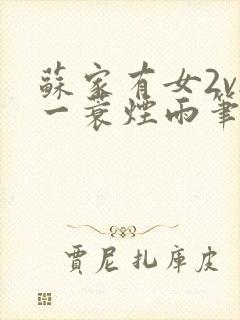 蘇家有女2v
一蓑煙雨筆
賈尼扎庫皮